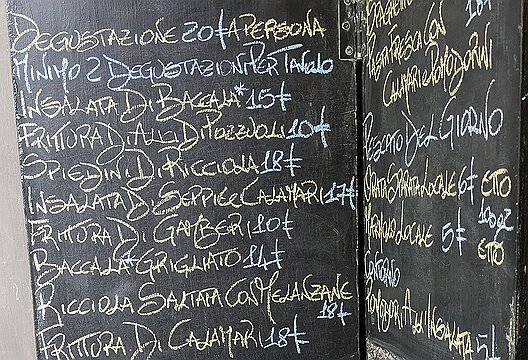 DEGUSTAZIONE 20€ A PERSONA
MINIMO 2 DEGUSTAZIONI PER TAVOLO
INSALATA DI BACCALA* 15€
FRITTURA DI DI POZZUOLI 10€
SPIEDINI DI RICCIOLA 18€
INSALATA DI SEPPIE E CALAMARI 17€
FRITTURA DI GAMBERI 10€
BACCALA* GRIGLIATO 14€
RICCIOLA SALTATA CON MELANZANE
18€
FRITTURA DI CALAMARI 18€
18€
PASTA FRESCA CON
CALAMARI E POMODORINI
PESCATO DEL GIORNO
LOCALE 6€ ETTO
100gr
LOCALE 5€ ETTO
CONTORNO
POMODORI ALL'INSALATA 5€